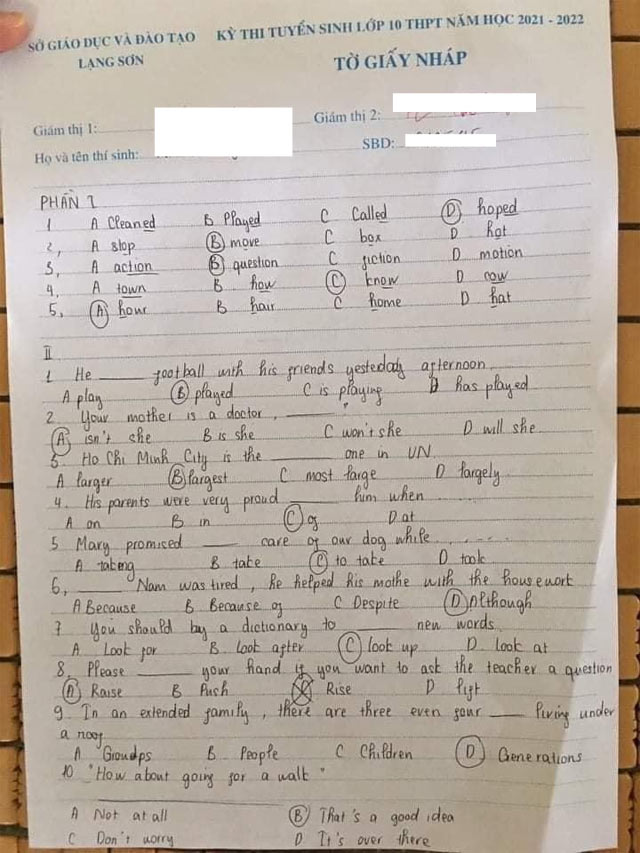 SỞ GIÁO DỤC VÀ ĐÀO TẠO KỲ THI TUYỂN SINH LỚP 10 THPT NĂM HỌC 2021 - 2022
LẠNG SƠN TỜ GIẤY NHÁP
Giám thị 1: Giám thị 2:
Họ và tên thí sinh: SBD:
PHẦN I
1 A Cleaned B Played C Called D hoped
2, A stop B move C box D hot
3, A action B question C fiction D motion
4. A town B how C know D cow
5, A hour B hair C home D hat
II
1 He ____ football with his friends yesterday afternoon
A play B played C is playing D has played
2. Your mother is a doctor, ____"
A isn't she B is she C won't she D will she
3. Ho Chi Minh City is the ____ one in VN
A larger B largest C most large D largely
4. His parents were very proud ____ him when
A on B in C of D at
5 Mary promised ____ care of our dog while .....
A taking B take C to take D took
6, ____ Nam was tired, he helped his mothe with the housework
A Because B Because of C Despite D Although
7 You should by a dictionary to ____ new words
A Look for B look after C look up D look at
8. Please ____ your hand if you want to ask the teacher a question
A Raise B Push C Rise D lift
9. In an extended family, there are three even four ____ living under
a roof
A Groups B People C Children D Generations
10 "How about going for a walk"
A Not at all B That's a good idea
C Don't worry D It's over there